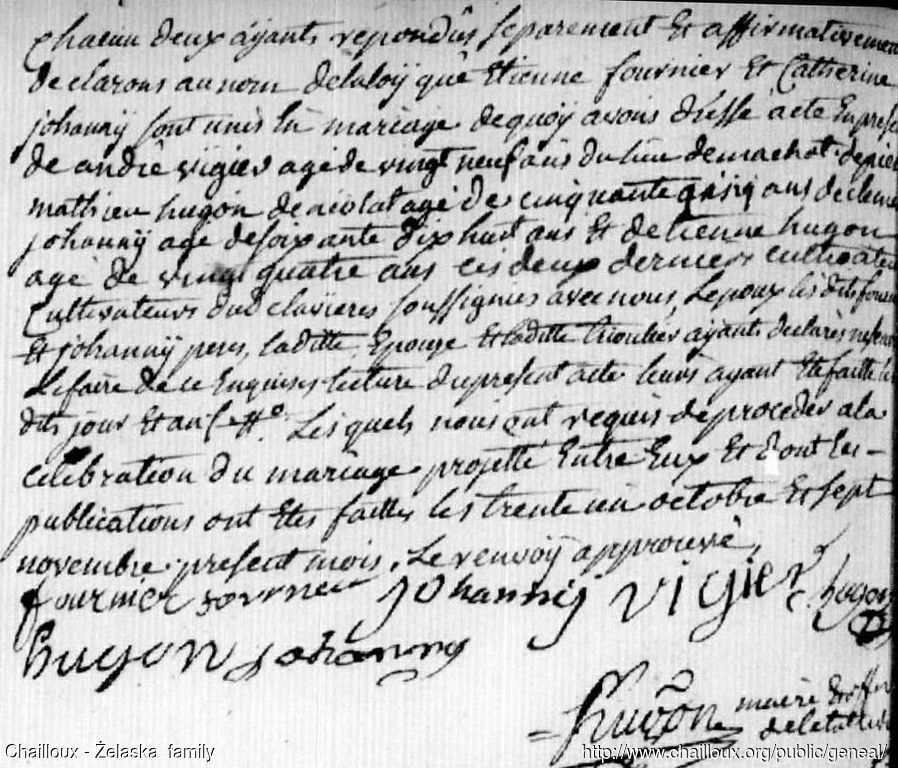 chacun deux ayants repondus separement Et affirmativement
declarons au nom delaloÿ que Etienne fournier Et Catherine
johannÿ sont unis En mariage dequoÿ avons dressé acte En presen
de andré vigier agé de vingt neuf ans du lieu demachot de pier
mathieu hugon de niolat agé de cinquante ans declem
johannÿ agé de soixante dix huit ans Et detienne hugon
agé de vingt quatre ans ces deux derniers cultivate
Cultivateurs clavieres soussignies avec nous, Lepoux les dits fourn
Et johannÿ peres, laditte Epouze Et laditte ayants declarés ne
Lefaire de ce Enquises lecture du present acte leurs ayant Eté faitte les
dits jour Et an Lesquels nous ont requis de proceder ala
celebration du mariage projetté Entre Eux Et dont les-
publications ont Etés faittes les trente un octobre Et sept
novembre present mois. Le renvoÿ approuvé,
fournier johannÿ vigier hugon
hugon johanny
= hugon maire Et offi
deletat civil
Chailloux - Żelaska family
http://www.chailloux.org/public/geneal/